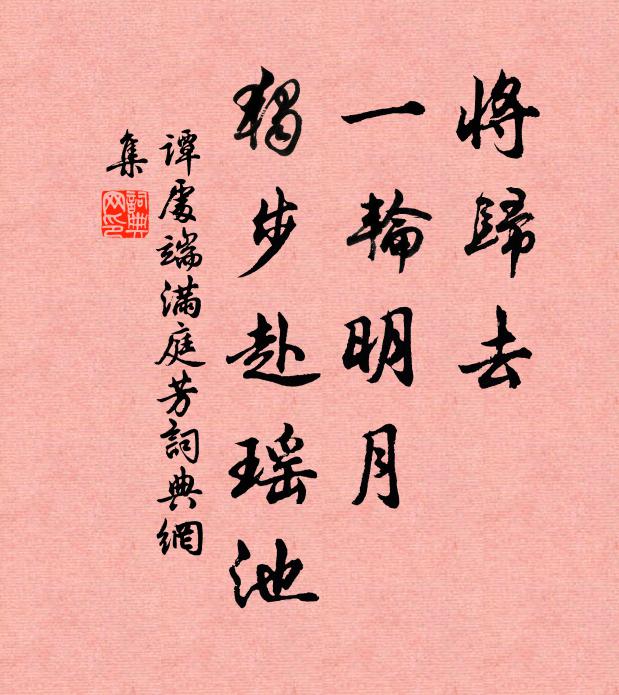 將歸去
一輪明月
獨步赴瑶池
譚處端滿庭芳詞典網
集
詞典
网印